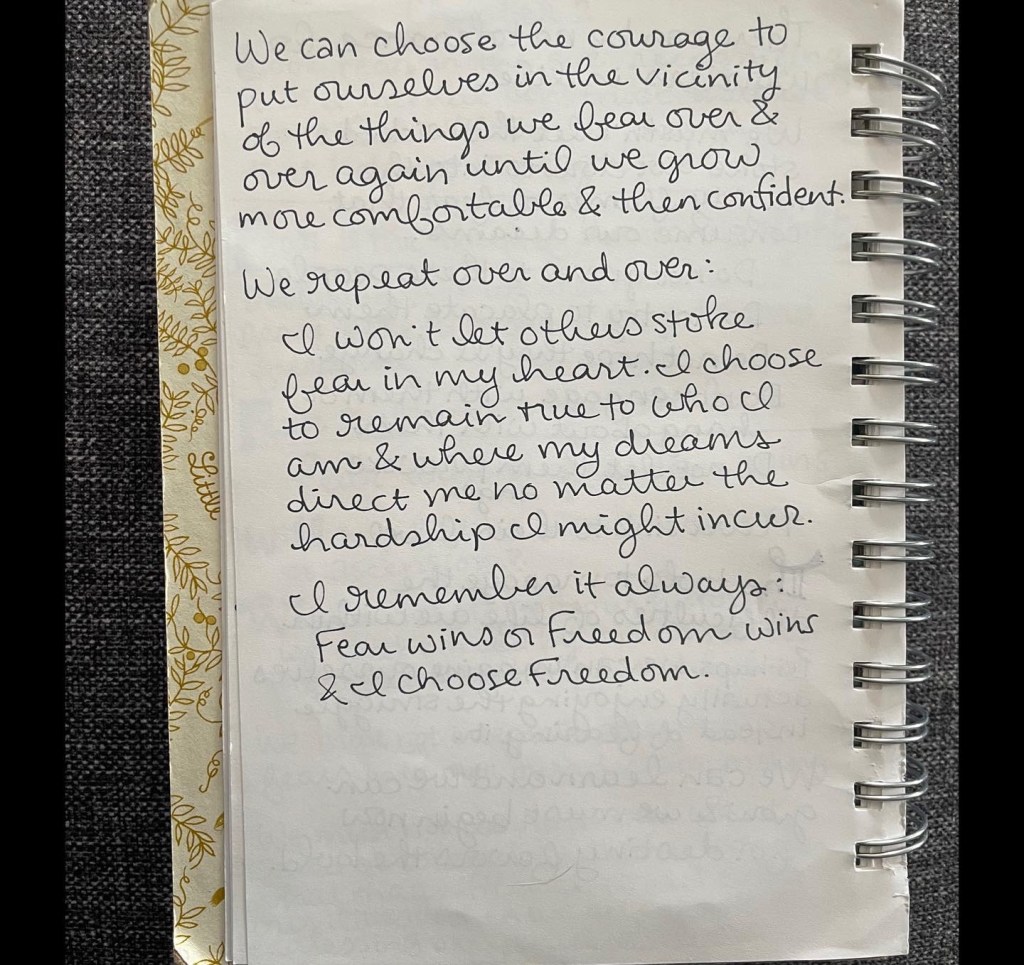 We can choose the courage to
put ourselves in the vicinity
of the things we fear over &
over again until we grow
more comfortable & then confident.
We repeat over and over:
I won't let others stoke
fear in my heart. I choose
to remain true to who I
am & where my dreams
direct me no matter the
hardship I might incur.
I remember it always:
Fear wins or Freedom wins
& I choose Freedom.
Little